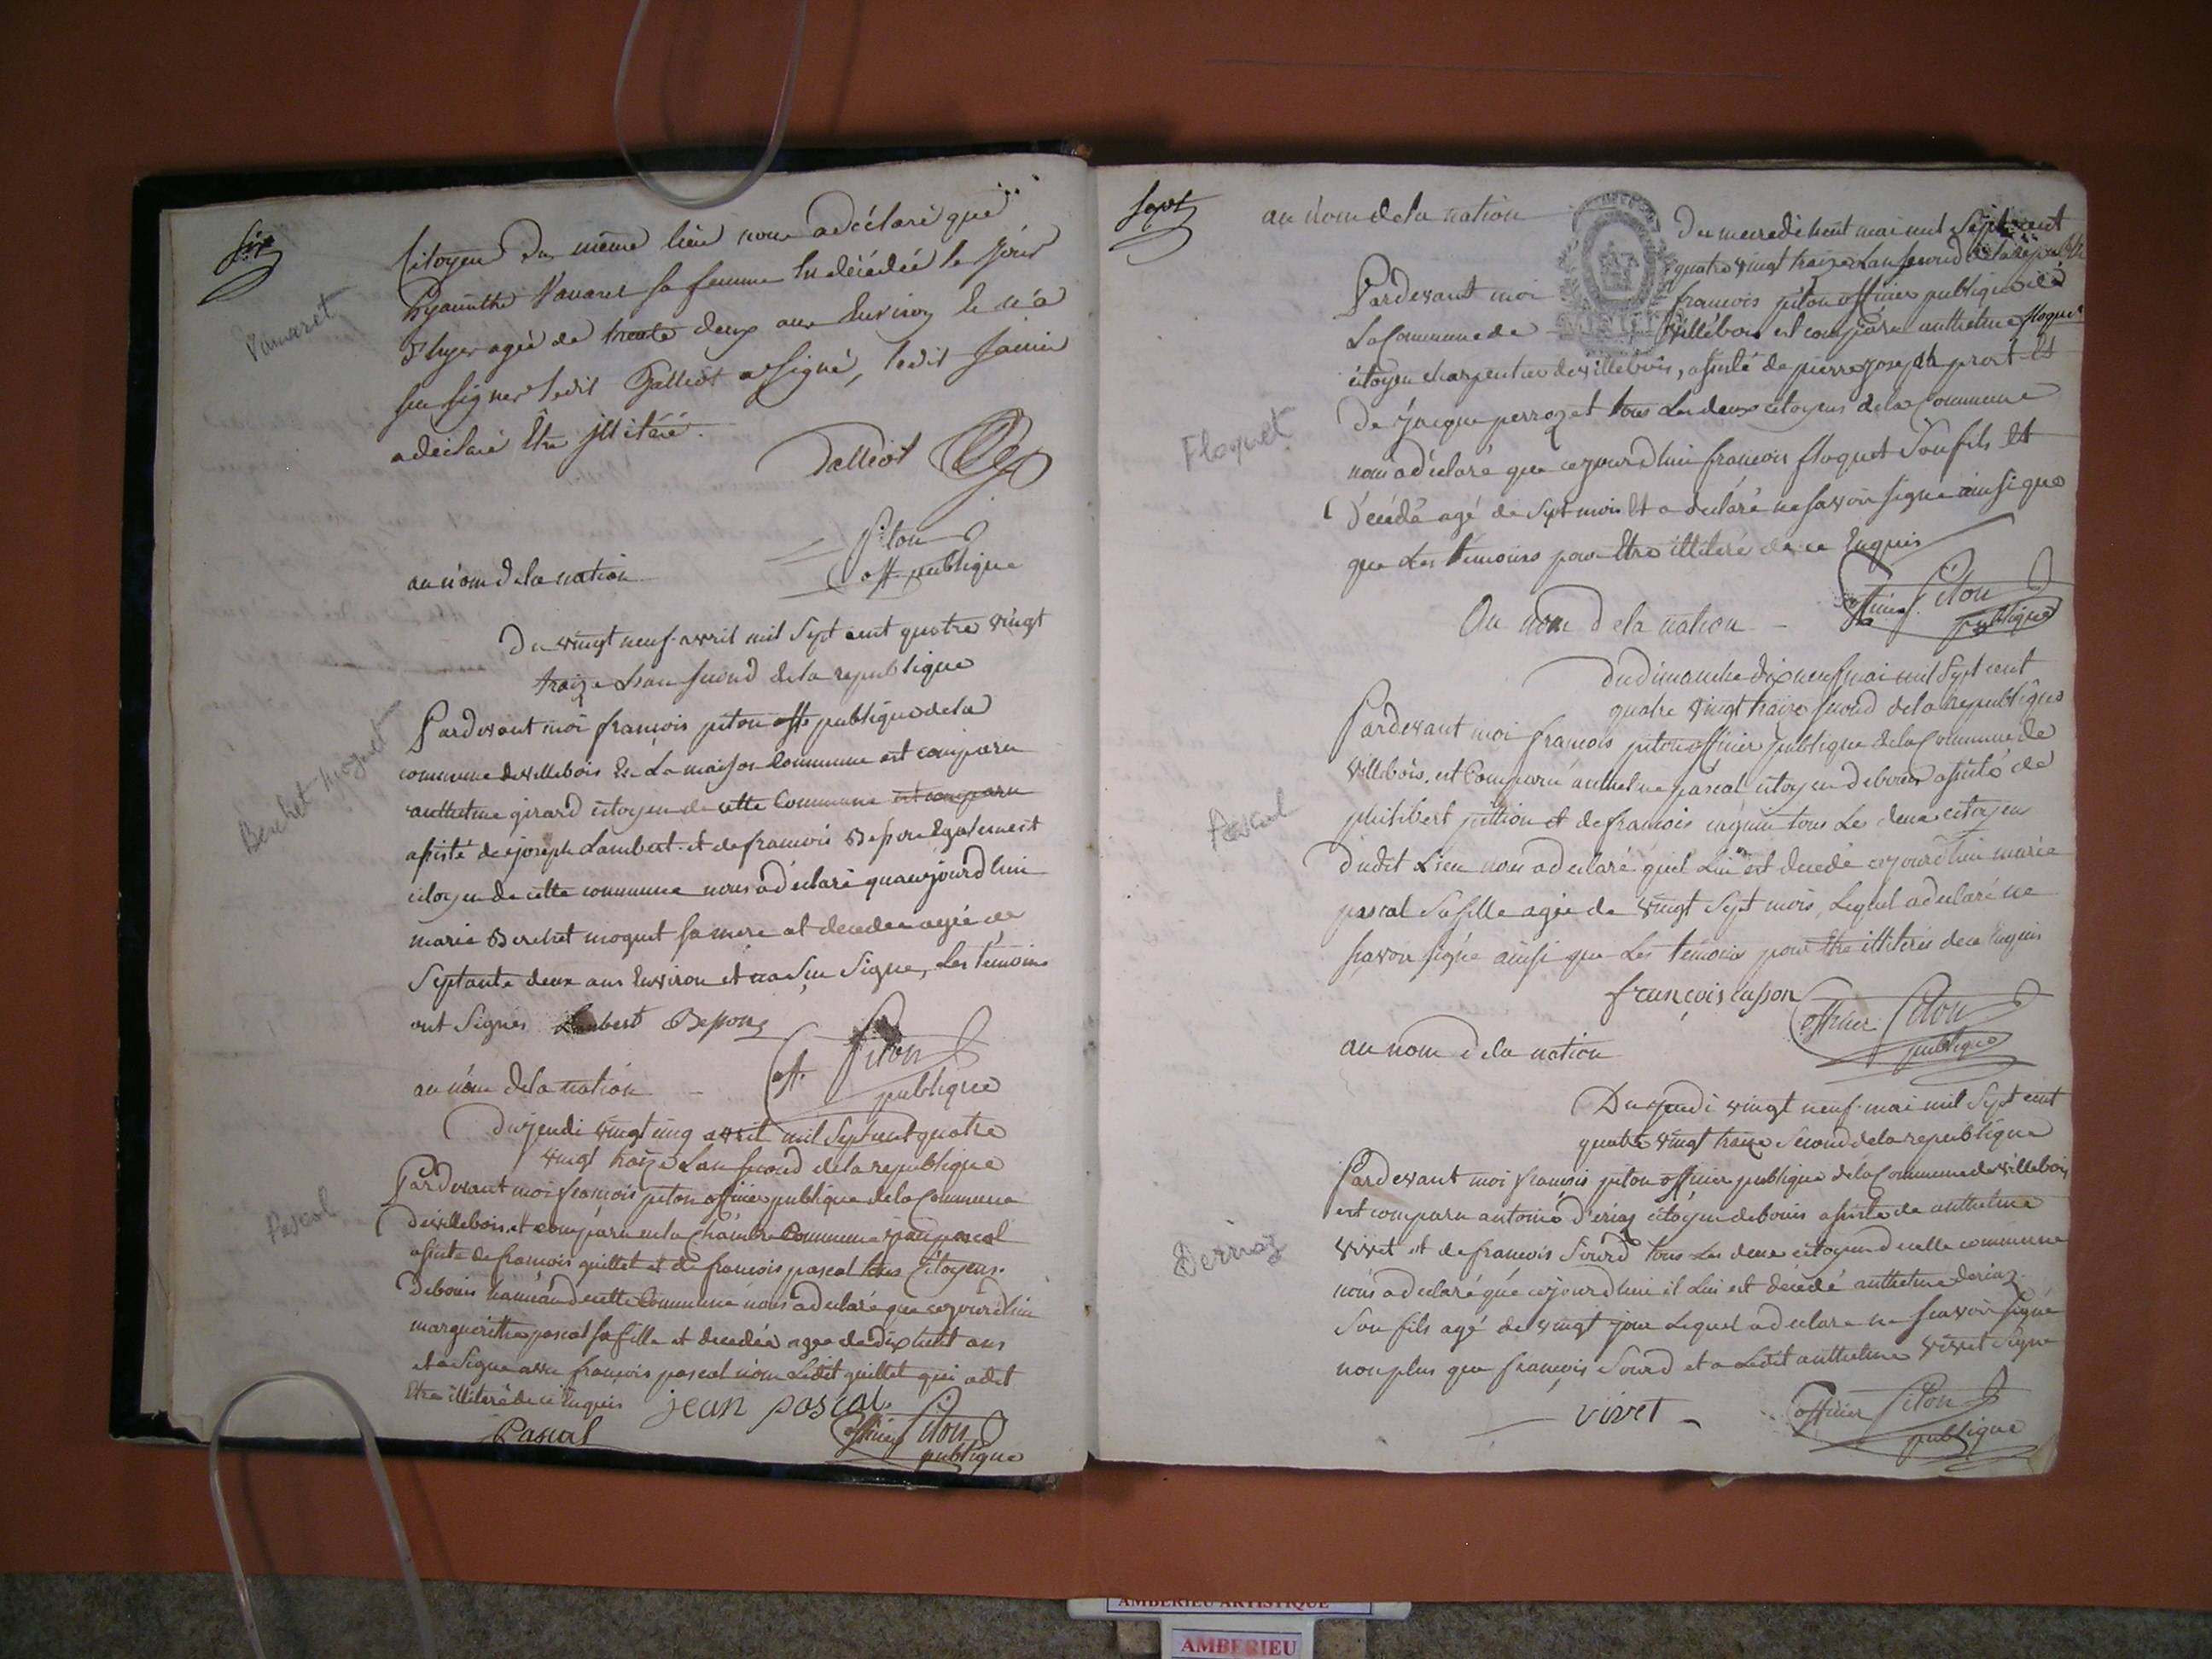 Six
Citoyen du même lieu nous a déclaré que
hyacinthe Vanaret sa femme Est décédée le jour
d'hyer agée de trente deux ans Environ Et n'a
su signer ledit Galliot a signé, ledit
a déclaré Etre illitéré.
Vanaret
Galliot
Piton
off. publique
au nom de la nation
Du vingt neuf avril mil Sept cent quatre vingt
traize Lan second de la republique
Pardevant moi françois piton offe publique de la
commune de villebois En La maison Commune est comparu
anthelme girard citoyen de cette Commune est comparu
assisté de joseph Lambert et de francois Besson Egalement
citoyen de cette commune nous a déclaré quaujourdhui
marie Berchet moquet sa mere et decedee agée de
Septante deux ans Environ et na Su Signe, Les témoins
ont Signés Lambert Besson
Berchet moquet
Piton
off. publique
au nom de la nation
Du jeudi vingt avril mil Sept cent quatre
vingt traize Lan second de la republique
Pardevant moi francois piton officier publique de la Commune
de villebois et comparu en la Chambre Commune jean pascal
assisté de francois guillet et de francois pascal tous Citoyens
Debouis hameau de cette Commune nous a declaré que cejourdhui
margueritte pascal sa fille et decedée agee de dix huit ans
et a Signe avec françois pascal non Ledit guillet qui a dit
Etre illiteré de ce Enquis
Pascal
jean pascal
Pascal
officier Piton
publique
Sept
au nom de la nation
Du mecredi huit mai mil Sept cent
quatre vingt traize Lan second de la republi
Pardevant moi francois piton officier publique de
La Commune de villebois est comparu anthelme floquet
citoyen charpentier de villebois, assisté de pierre joseph prost Et
De Jacque perrozet tous Les deux citoyens de la Commune
nous a déclaré que cejourdhui francois floquet Son fils Et
Décédé agé de Sept mois Et a déclaré ne savoir signe ainsi que
que Les temoins pour Etre illiteré de ce Enquis
Floquet
officier Piton
publique
Au nom de la nation
du dimanche dix neuf mai mil Sept cent
quatre vingt traize second de la republique
Pardevant moi francois piton officier publique de la Commune de
villebois, est Comparu anthelme pascal citoyen debouis assisté de
philibert pittion et de francois tous Les deux citoyen
dudit Lieu nous a declaré quil Lui est decedé cejourdhui marie
pascal Sa fille agée de vingt Sept mois, Lequel a declaré ne
savoir signe ainsi que Les temoins pour Etre illiterés de ce Enquis
Pascal
françois cusson
officier Piton
publique
au nom de la nation
Du jeudi vingt neuf mai mil Sept cent
quatre vingt traize Second de la republique
Pardevant moi francois piton officier publique de la Commune de villebois
est comparu antoine d'eriaz citoyen debouis assisté de anthelme
vivet et de francois Sourd tous Les deux citoyen de cette commune
nous a declaré que cejourdhui il Lui est décédé anthelme deriaz
Son fils agé de vingt jour Lequel a declare ne scavoir signé
non plus que francois Sourd et a Ledit anthelme vivet signe
Derriaz
vivet
officier Piton
publique
AMBERIEU ARTISTIQUE
AMBERIEU